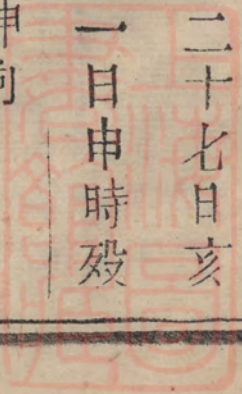 二十七日亥
一日申時歿
申向